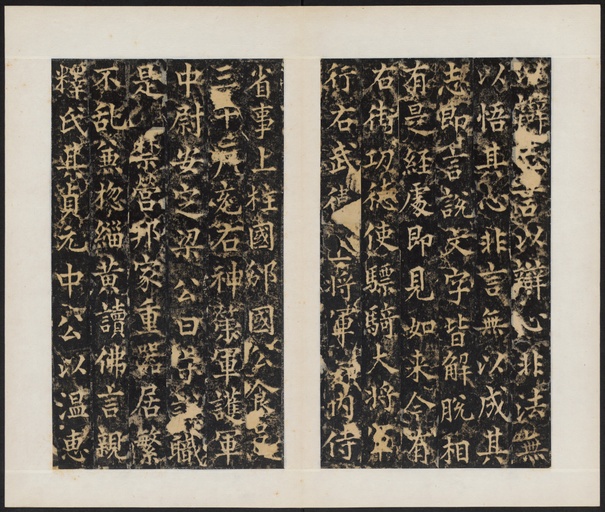 以辯□言以辯心非法無
以悟其心非言無以成其
志即言說文字皆解脫相
有是經處即見如來今有
右街功德使驃騎大將軍
行右武衛上將軍□內侍
省事上柱國邠國公食邑
三千戶充右神策軍護軍
中尉安定梁公曰守謙職
是禁營邦家重器居繁
不乱兼揔緇黄讀佛言親
釋氏其貞元中公以温惠